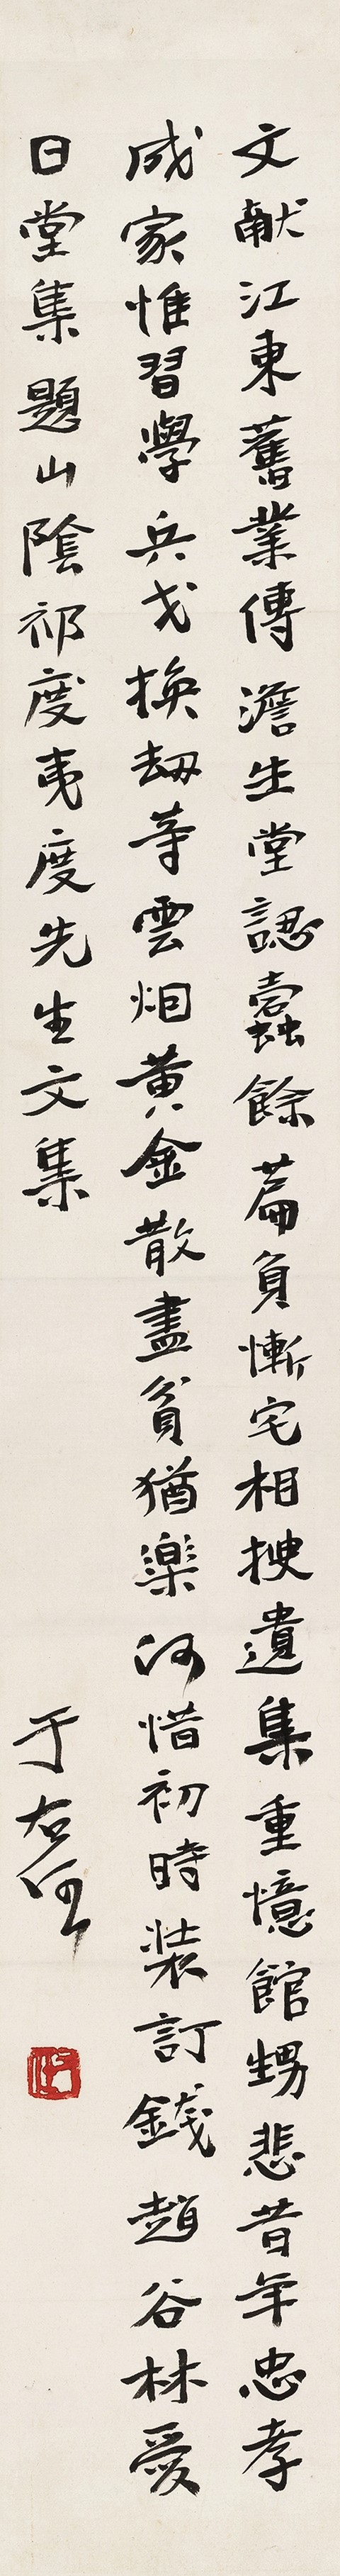 文献江東舊業傳澹生堂認蠹餘篇負慚宅相搜遺集重憶館甥悲昔年忠孝
成家惟習學兵戈換劫等雲烟黃金散盡貧猶樂何惜初時裝訂錢趙谷林愛
日堂集題山陰祁度夷度先生文集
于右任